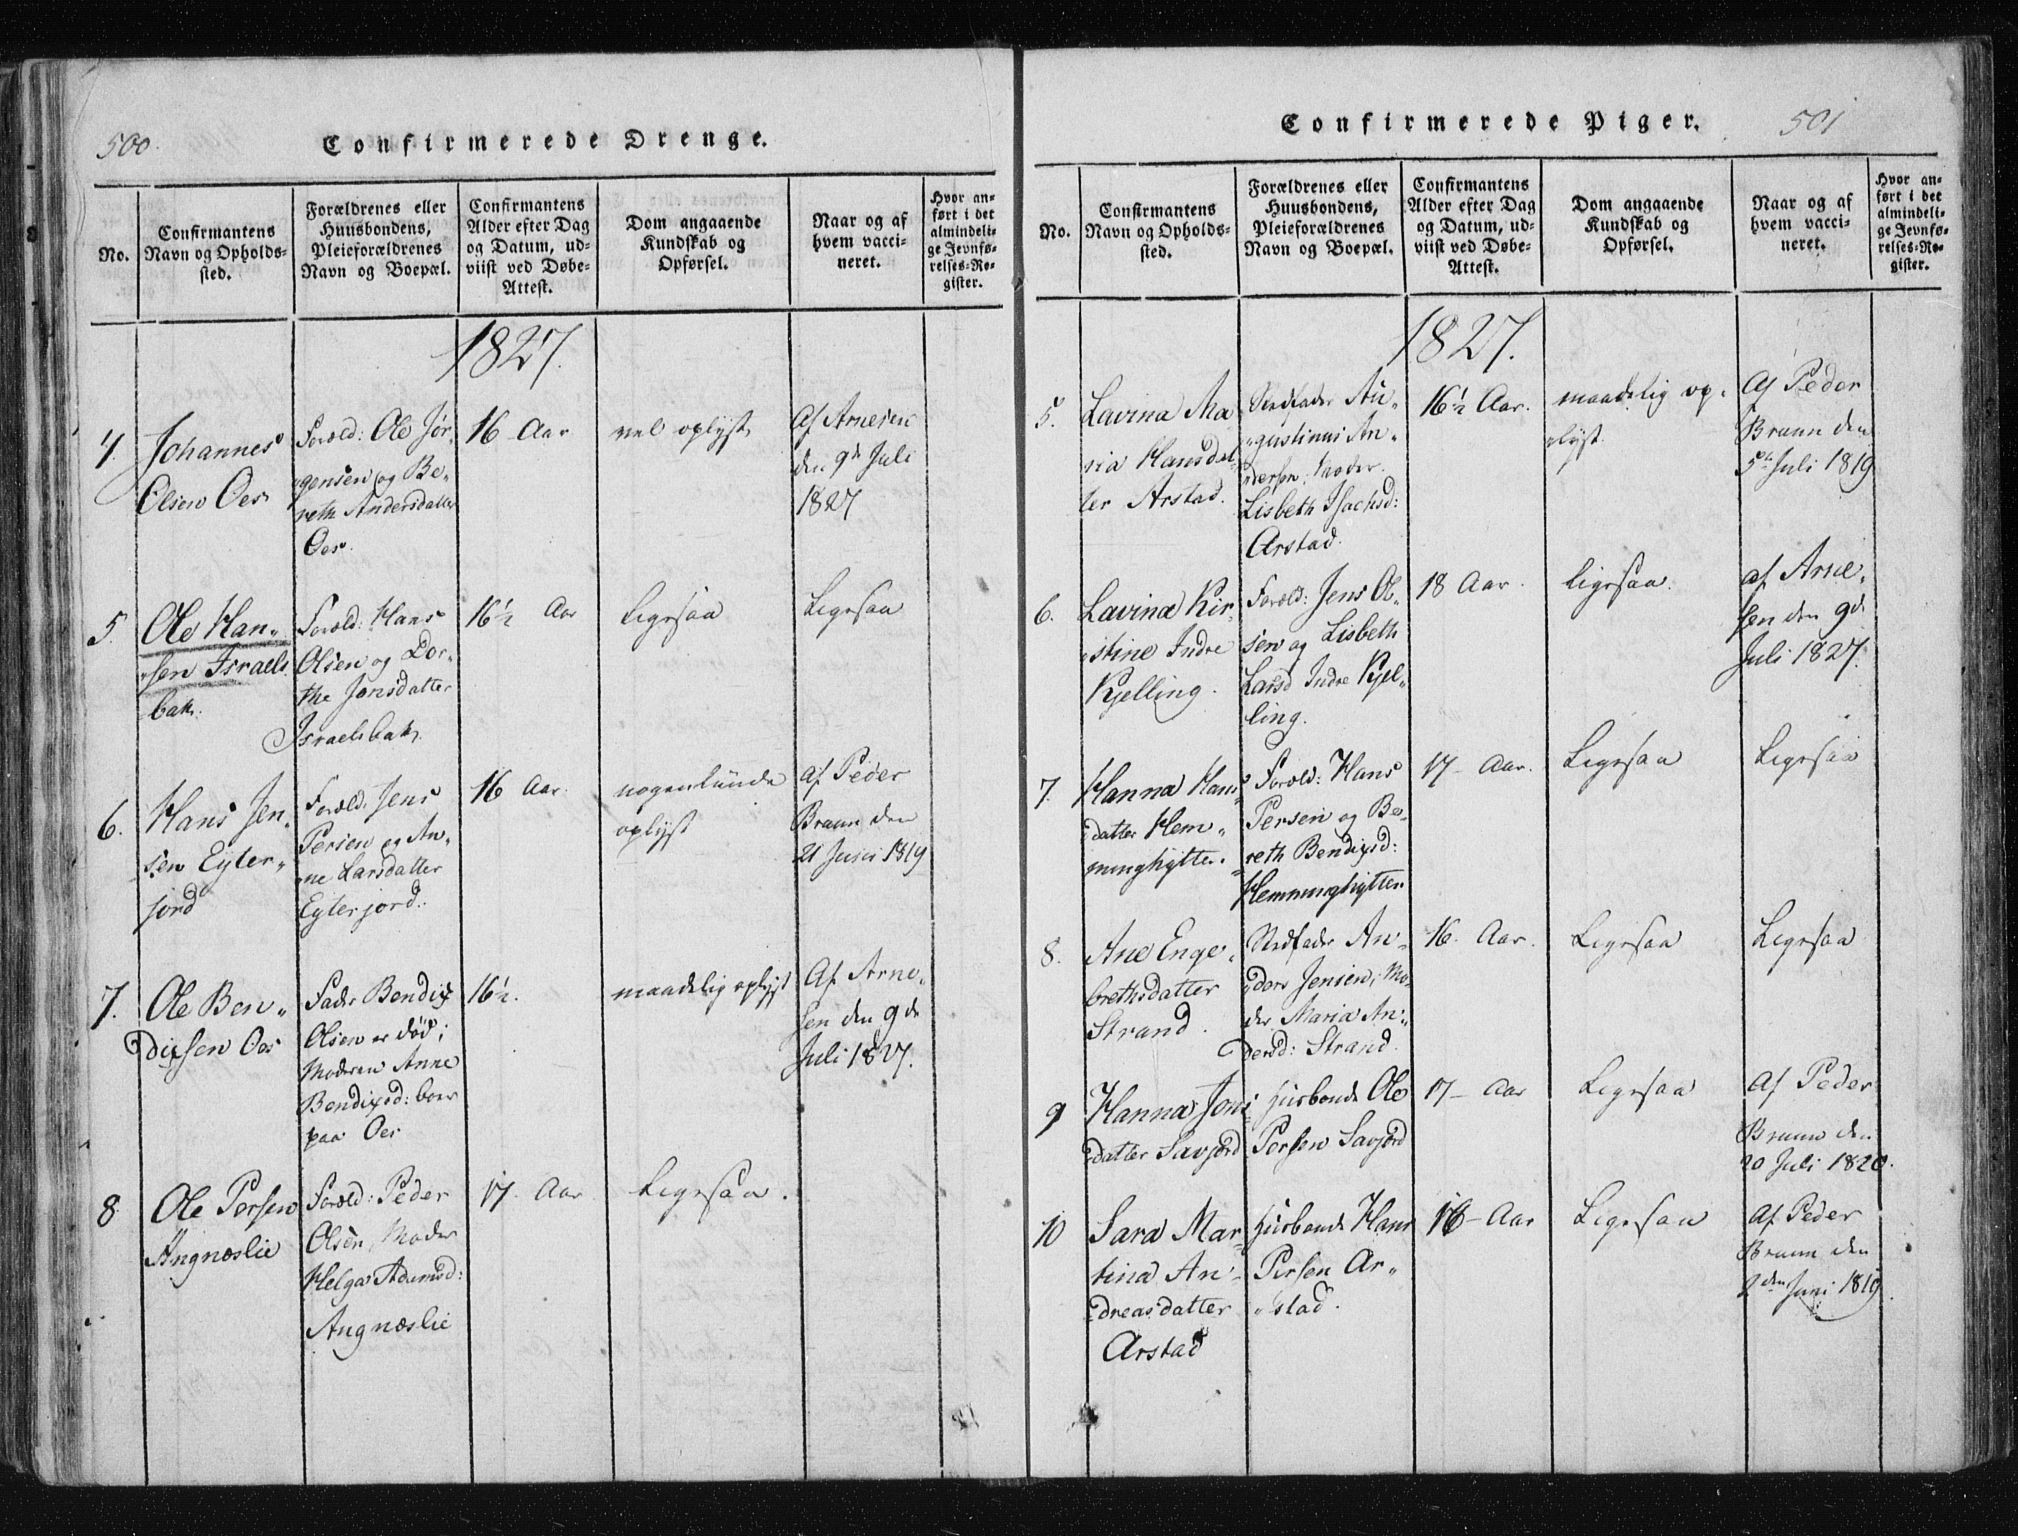 500.
Confirmerede Drenge.
No.
Confirmantens
Navn og Opholds-
sted.
Forældrenes eller
Huusbondens,
Pleieforældrenes
Navn og Boepæl.
Confirmantens
Alder efter Dag
og Datum, ud-
viist ved Døbe-
Attest.
Dom angaaende
Kundskab og
Opførsel.
Naar og af
hvem vacci-
neret.
Hvor an-
ført i det
almindeli-
ge Jevnfø-
relses-Re-
gister.
1827.
4.
Johannes
Olsen Oes
Foræld: Ole Jør-
gensen og Be-
reth Andersdatter
Oes.
16 Aar
vel oplyst
Af Arnesen
den 9de Juli
1827
5.
Ole Han-
sen Israels
bak.
Foræld: Hans
Olsen og Dor-
the Jonsdatter
Israelsbak
16½ Aar
Ligesaa
Ligesaa
6.
Hans Jen-
sen Eyter-
jord
Foræld: Jens
Persen og An-
ne Larsdatter
Eyterjord.
16 Aar.
nogenlunde
oplyst
af Peder
Bruun den
21 Juni 1819
7.
Ole Ben-
dixsen Oes
Fader Bendix
Olsen er död;
Moderen Anne
Bendixsd: boer
paa Oes
16½.
maadelig oplyst
Af Arne-
sen den 9de
Juli 1827.
8
Ole Persen
Angnæslie
Foræld: Peder
Olsen, Moder
Helga Adamsd:
Angnæslie
17. Aar
Ligesaa.
Confirmerede Piger.
501
No.
Confirmantens
Navn og Opholds-
sted.
Forældrenes eller
Huusbondens,
Pleieforældrenes
Navn og Boepæl.
Confirmantens
Alder efter Dag
og Datum, ud-
viist ved Døbe-
Attest.
Dom angaaende
Kundskab og
Opførsel.
Naar og af
hvem vacci-
neret.
Hvor an-
ført i det
almindeli-
ge Jevnfø-
relses-Re-
gister.
1827.
5.
Lavina Ma
ria Hansdat-
ter Arstad.
Stedfader Au-
gustinus An-
dersen, Moder
Lisbeth Isachsd:
Arstad.
16½ Aar.
maadelig op-
lyst
Af Peder
Bruun den
5te Juli 1819
6.
Lavina Kir
stine Indre
Kjelling.
Foræld: Jens Ol-
sen og Lisbeth
Larsd Indre Kjel-
ling.
18 Aar.
Ligesaa.
af Arne-
sen den 9de
Juli 1827.
7.
Hanna Hans-
datter Hem-
minghytten.
Foræld: Hans
Persen og Be-
reth Bendixsd:
Hemminghytten
17- Aar.
Ligesaa
Ligesaa
8.
Ane Enge-
brethsdatter
Strand.
Stedfader An-
ders Jensen, Mo-
der Maria An-
dersd: Strand.
16. Aar.
Ligesaa
Ligesaa
9
Hanna Jons
datter Savjord
Husbonde Ole
Persen Savjord
17- Aar
Ligesaa
Af Peder
Bruun den
20 Juli 1820.
10
Sara Mar-
tina An-
dreasdatter
Arstad
Husbonde Hans
Persen Ar-
stad.
16- Aar
Ligesaa
Af Peder
Bruun den
2den Juni 1819.